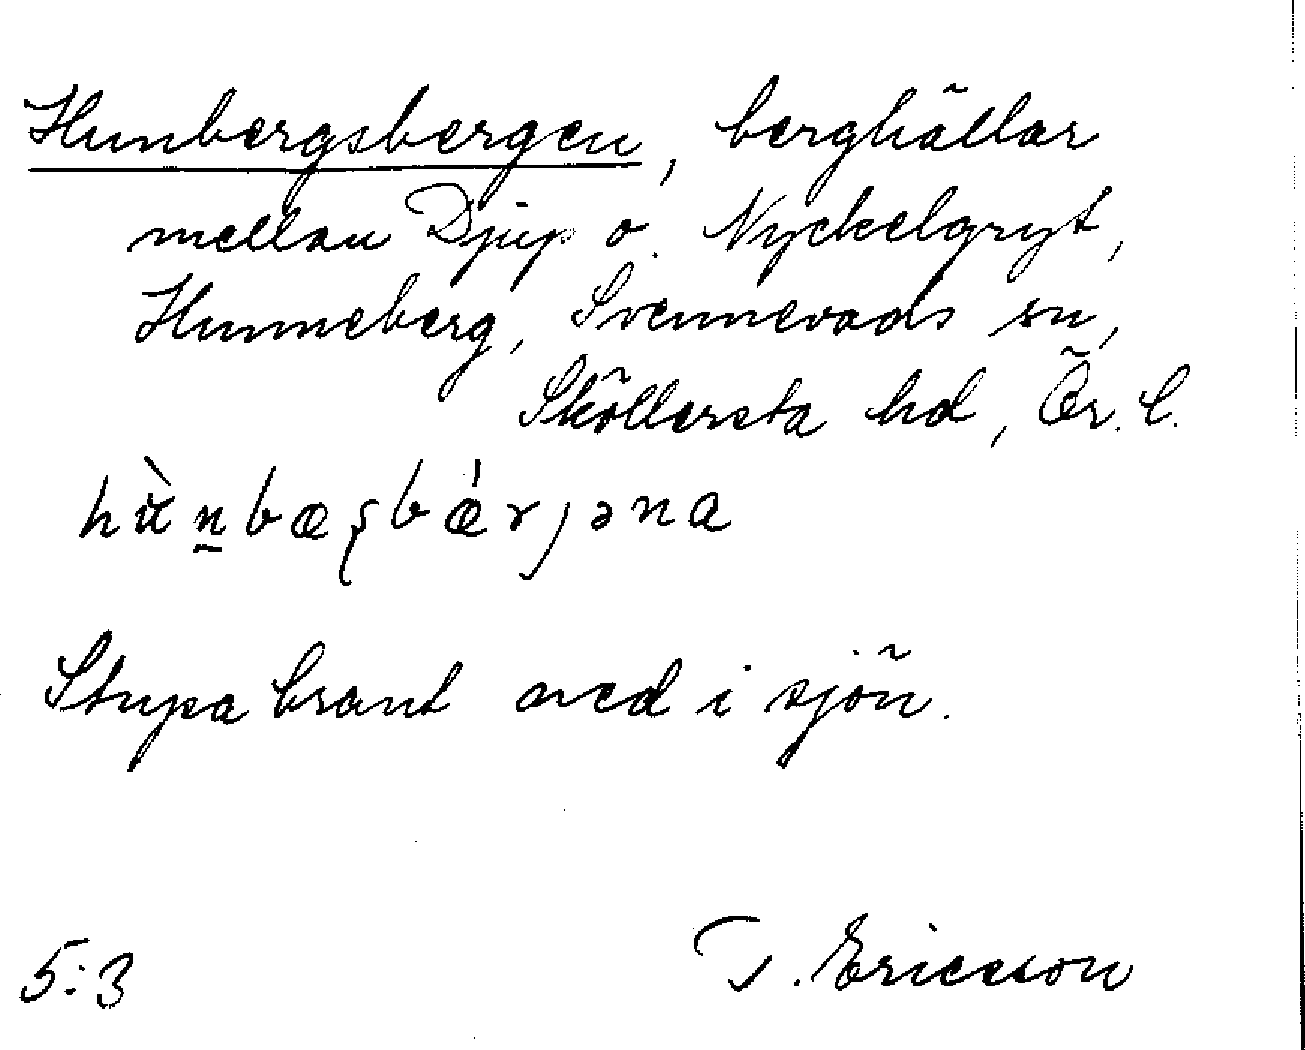 Hunbergsbergen, berghällar
mellan Djup o. Nyckelgryt,
Hunneberg, Svennevads sn,
Sköllersta hd, Ör. l.
hùn̲bæʂbǽrjəna
Stupa brant ned i sjön.
5:3 T. Ericsson